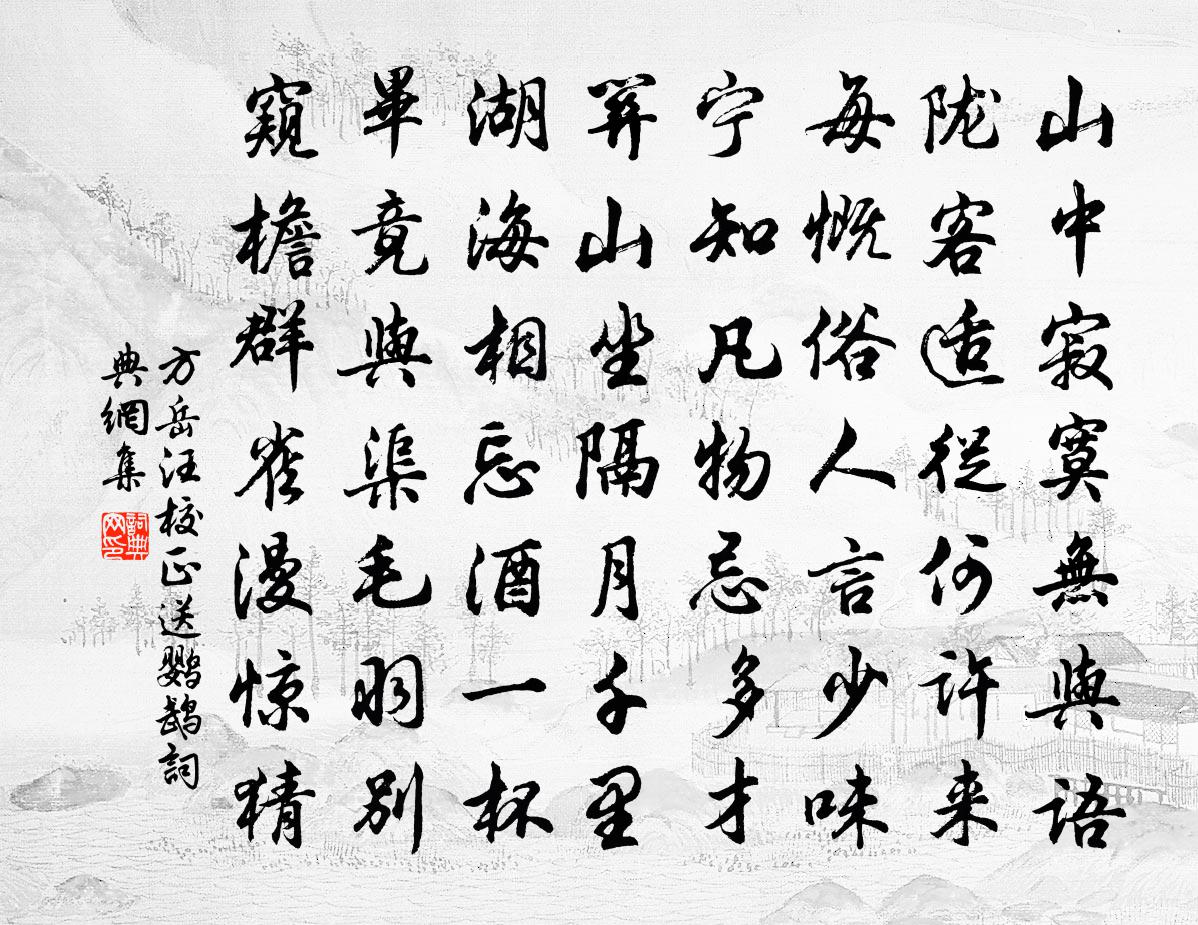 山中寂寞無與语
陇客适從何许来
每慨俗人言少味
宁知凡物忌多才
关山坐隔月千里
湖海相忘酒一杯
畢竟與渠毛羽别
窥檐群雀漫惊猜
方岳汪校正送鹦鹉詞
典網集
詞典
网